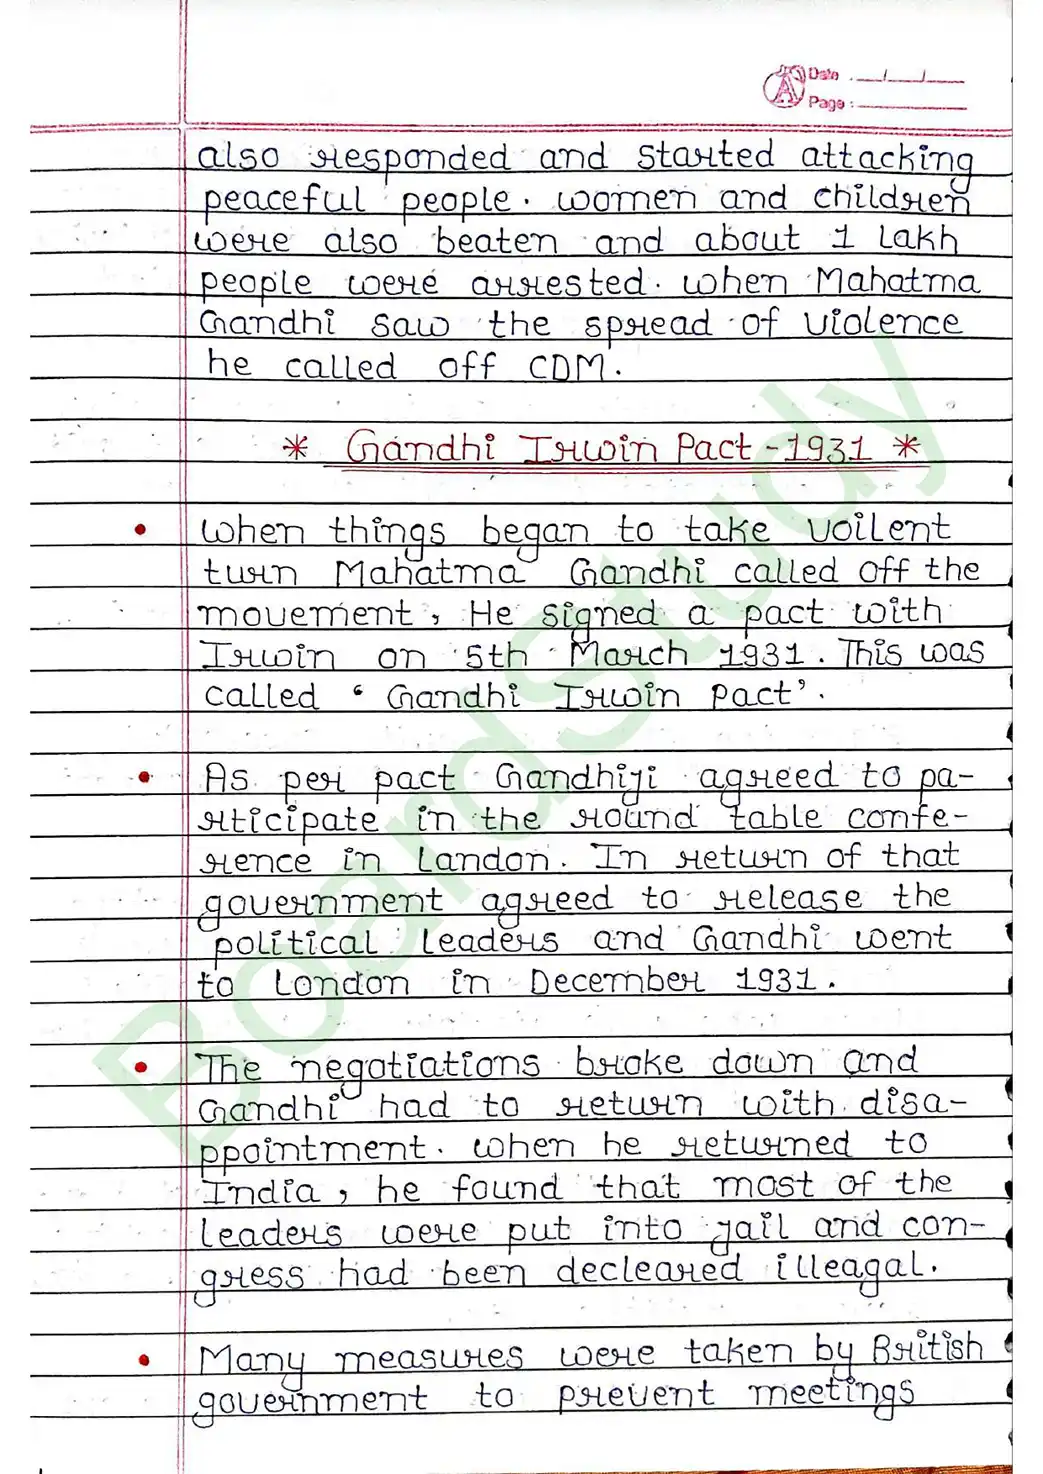 Date : __/__/__
Page : ______
also responded and started attacking
peaceful people. women and children
were also beaten and about 1 Lakh
people were arrested. when Mahatma
Gandhi saw the spread of violence
he called off CDM.
* Gandhi Irwin Pact - 1931 *
• When things began to take voilent
turn Mahatma Gandhi called off the
movement, He signed a pact with
Irwin on 5th March 1931. This was
called ‘Gandhi Irwin Pact’.
• As per pact Gandhiji agreed to pa-
rticipate in the round table confe-
rence in London. In return of that
government agreed to release the
political leaders and Gandhi went
to London in December 1931.
• The negotiations broke down and
Gandhi had to return with disa-
ppointment. when he returned to
India, he found that most of the
leaders were put into jail and con-
gress had been decleared illeagal.
• Many measures were taken by British
government to prevent meetings
BoardStudy